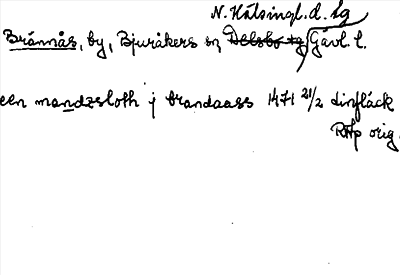 N. Hälsingl. d. sg
Brännås, by, Bjuråkers sn Delsbo tg Gävl. l.
een mandzsloth j brandaass 1471 21/2 dinfläck
RAp orig.